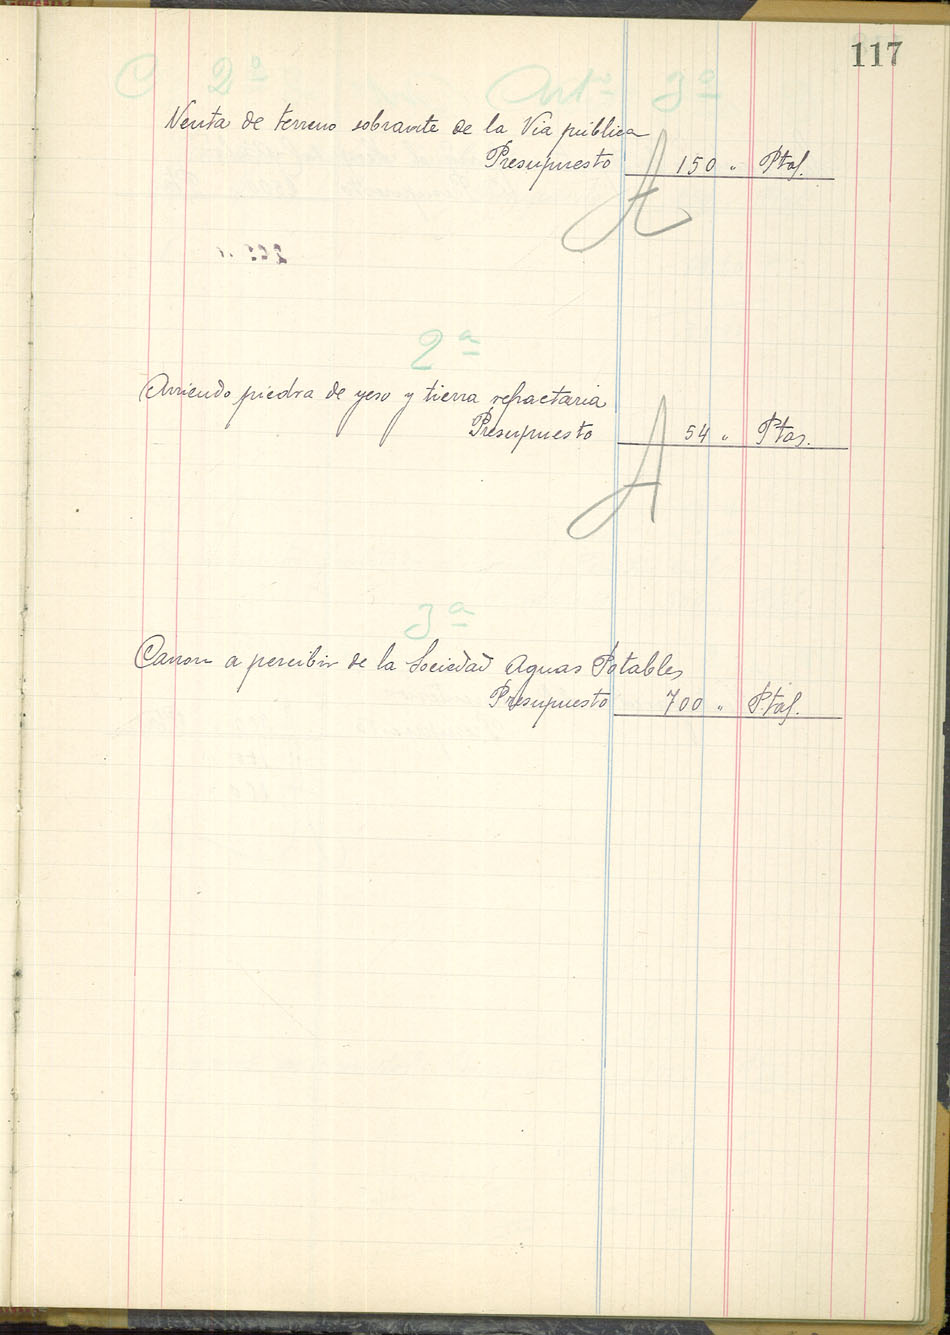 117
C 2º Artº 3º
Venta de terreno sobrante de la Via pública
Presupuesto 150 " Ptas.
A
2ª
Arriendo piedra de yeso y tierra refractaria
Presupuesto 54 " Ptas.
A
3ª
Canon a percibir de la Sociedad Aguas Potables
Presupuesto 700 " Ptas.